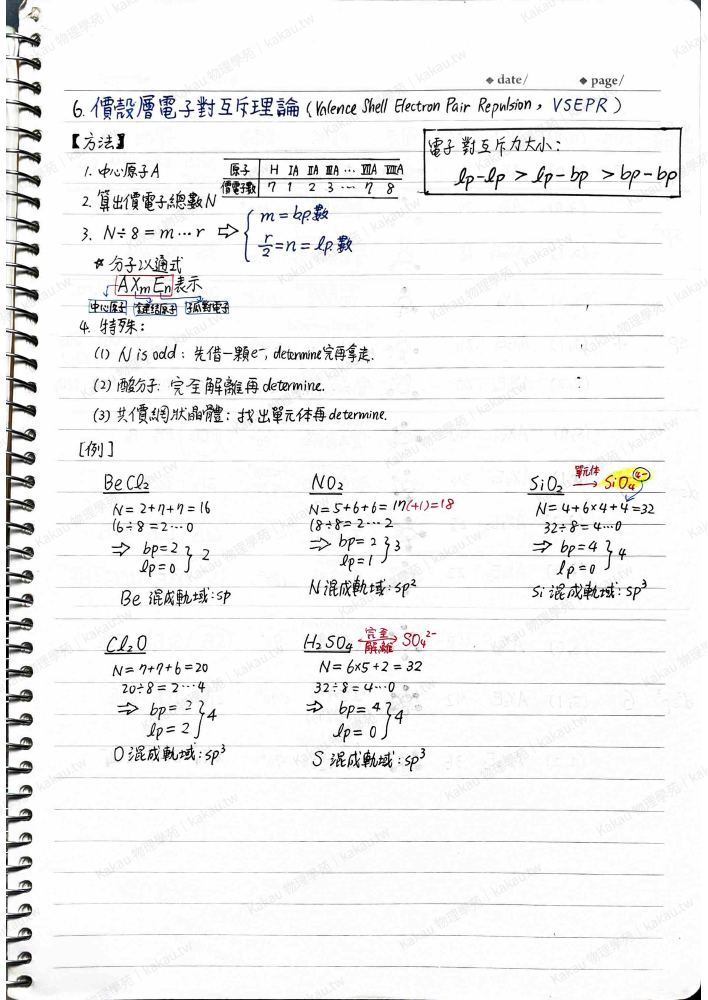 date/ page/
6. 價殼層電子對互斥理論 (Valence Shell Electron Pair Repulsion, VSEPR)
【方法】
電子對互斥力大小:
lp-lp > lp-bp > bp-bp
1. 中心原子A
原子 H IA IIA IIIA … VIIA VIIIA
價電子數 7 1 2 3 … 7 8
2. 算出價電子總數N
3. N÷8=m…r ⇨ { m=bp數
r/2=n=lp數
☆ 分子以通式
AXmEn表示
中心原子 鍵結原子 孤對電子
4. 特殊:
(1) N is odd: 先借一顆e-, determine完再拿走.
(2) 酸分子: 完全解離再determine.
(3) 共價網狀晶體: 找出單元体再determine.
[例]
BeCl2
N=2+7+7=16
16÷8=2…0
⇒ bp=2
lp=0 } 2
Be 混成軌域:sp
NO2
N=5+6+6=17(+1)=18
18÷8=2…2
⇒ bp=2
lp=1 } 3
N混成軌域:sp²
SiO2 單元体→ SiO4 4-
N=4+6×4+4=32
32÷8=4…0
⇒ bp=4
lp=0 } 4
Si混成軌域:sp³
Cl2O
N=7+7+6=20
20÷8=2…4
⇒ bp=2
lp=2 } 4
O混成軌域:sp³
H2SO4 完全解離→ SO4²⁻
N=6×5+2=32
32÷8=4…0
⇒ bp=4
lp=0 } 4
S 混成軌域:sp³
Kakau 物理學苑 | kakau.tw